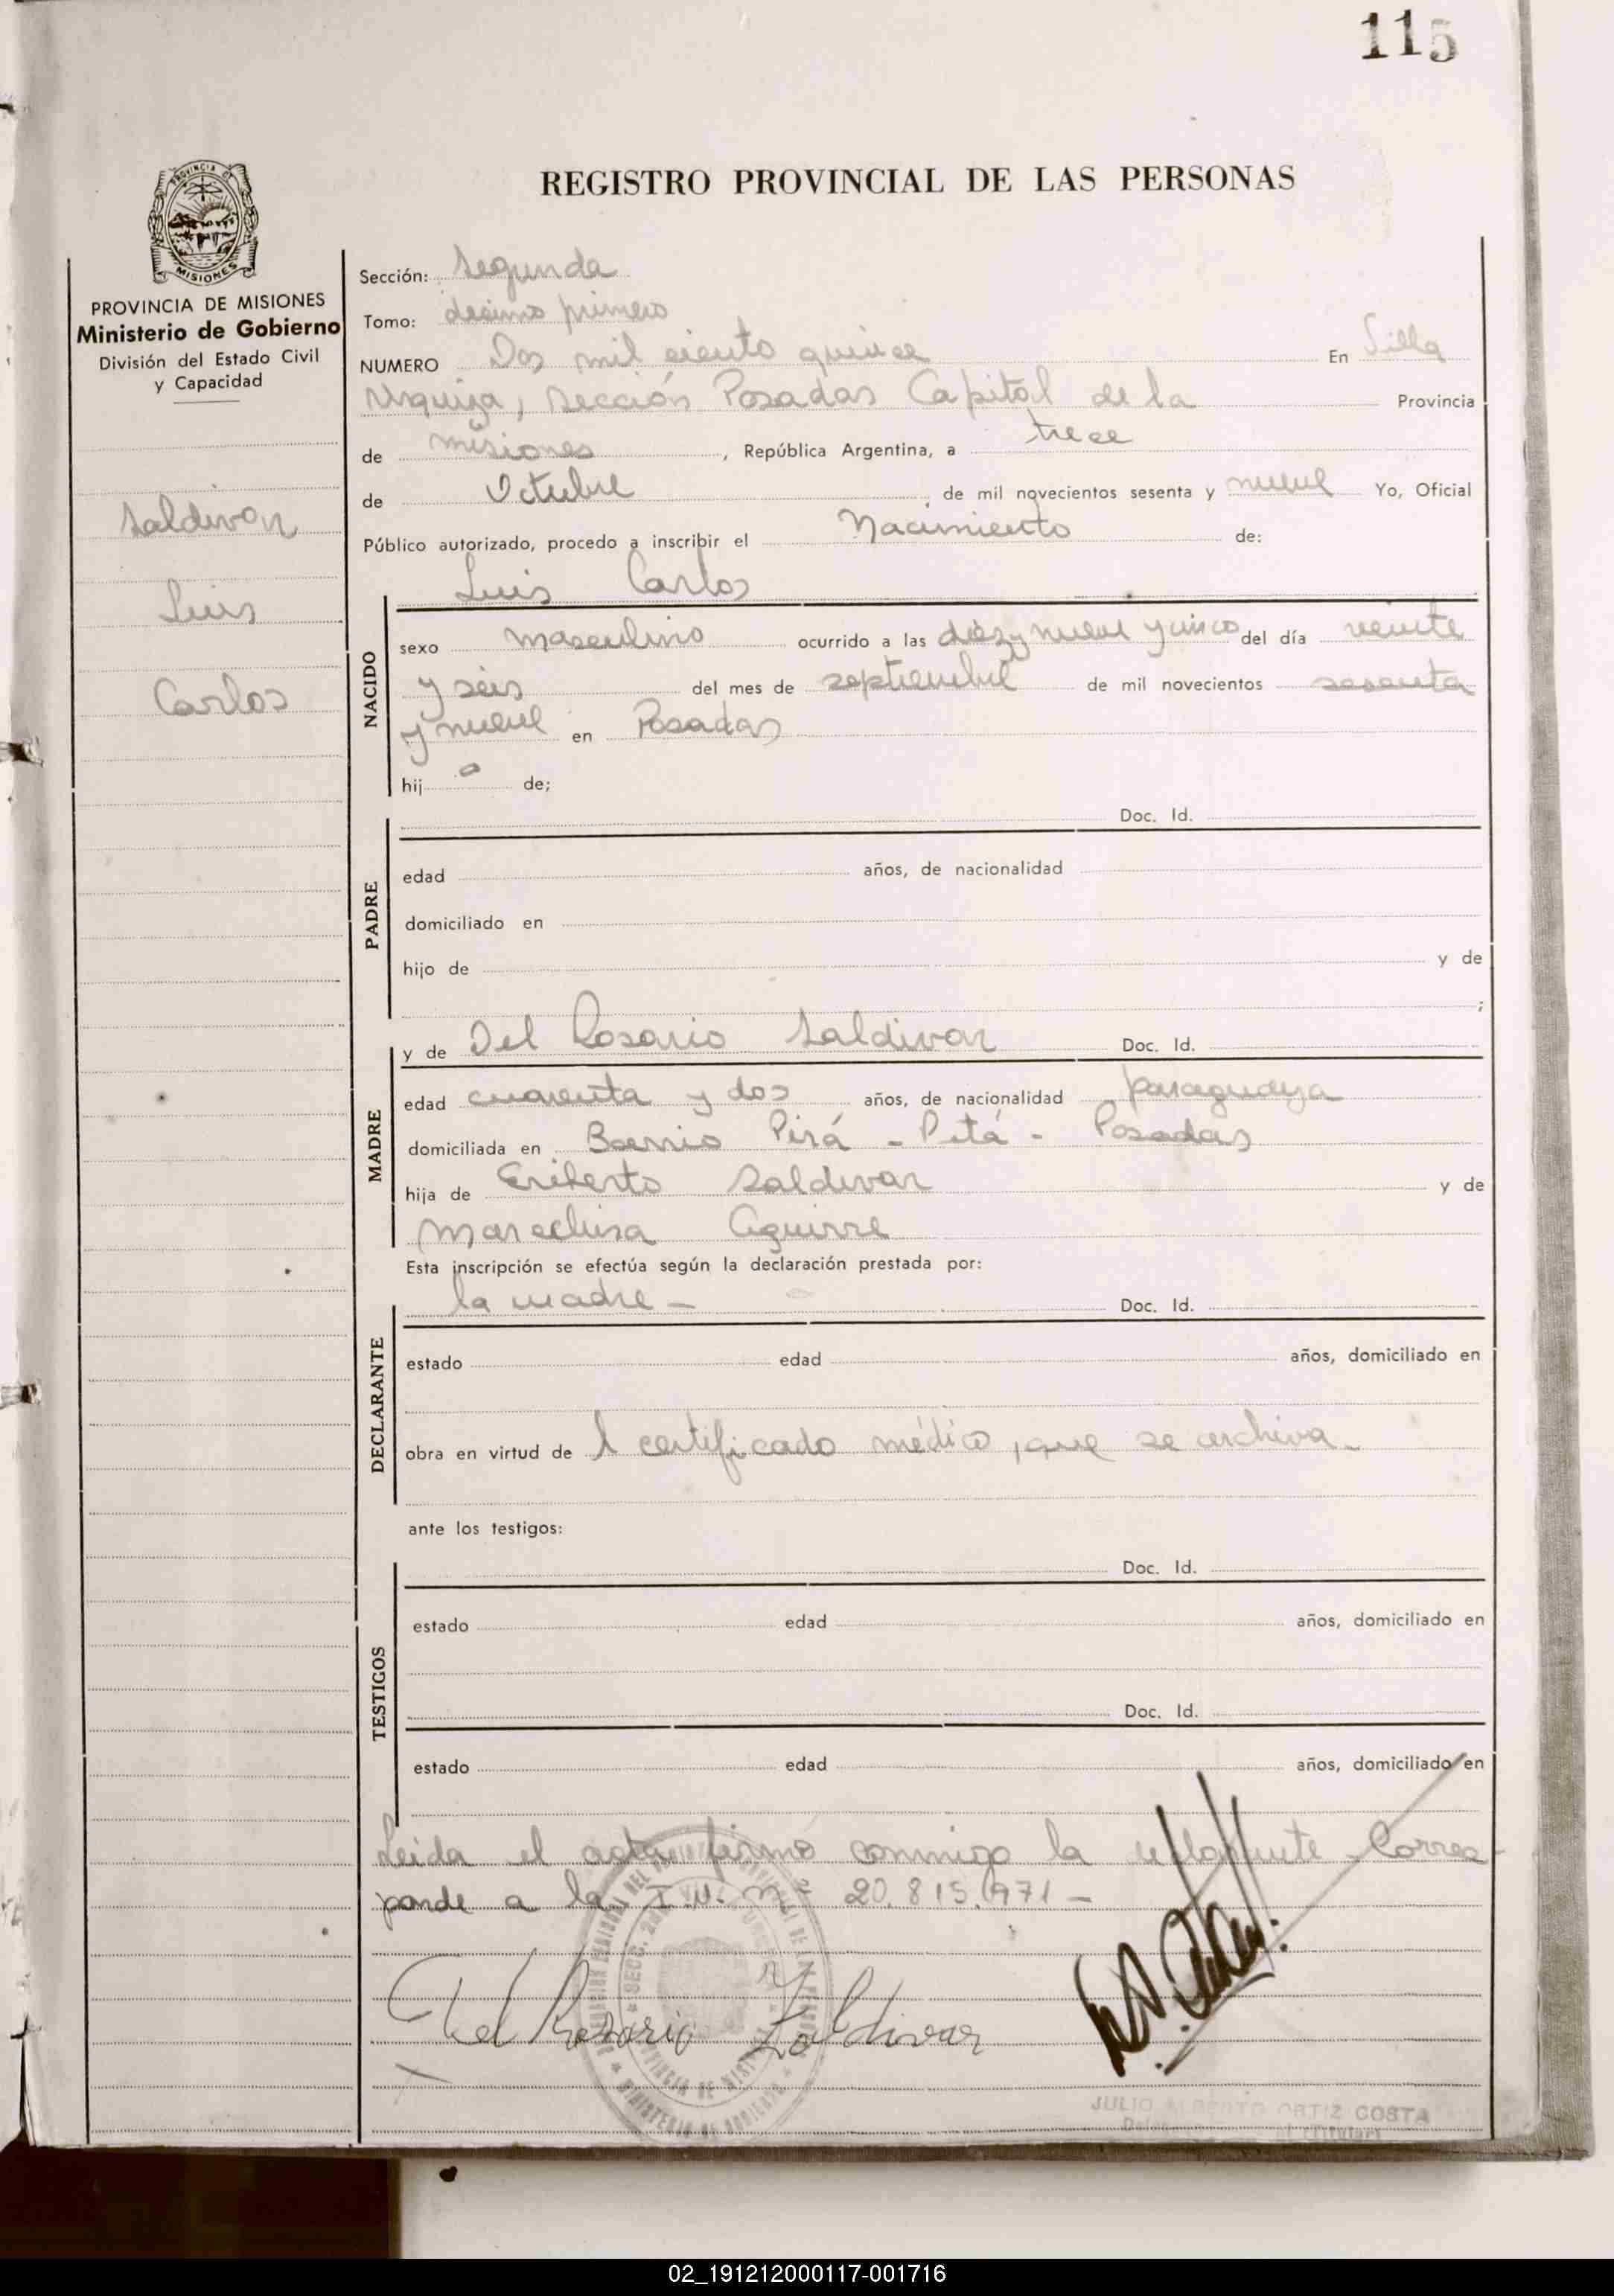 115
REGISTRO PROVINCIAL DE LAS PERSONAS
PROVINCIA DE MISIONES
Ministerio de Gobierno
División del Estado Civil
y Capacidad
Saldivar
Luis
Carlos
Sección: Segunda
Tomo: decimo primero
NUMERO Dos mil ciento quince En Villa
Urquiza, Sección Posadas Capital de la Provincia
de Misiones, República Argentina, a trece
de Octubre de mil novecientos sesenta y nueve Yo, Oficial
Público autorizado, procedo a inscribir el Nacimiento de:
Luis Carlos
NACIDO
sexo masculino ocurrido a las diez y nueve y cinco del día veinte
y seis del mes de septiembre de mil novecientos sesenta
y nueve en Posadas
hijo de;
Doc. Id.
PADRE
edad años, de nacionalidad
domiciliado en
hijo de y de
;
y de Del Rosario Saldivar Doc. Id.
MADRE
edad cuarenta y dos años, de nacionalidad paraguaya
domiciliada en Barrio Pirá - Pitá - Posadas
hija de Eriberto Saldivar y de
Marcelina Aguirre
Esta inscripción se efectúa según la declaración prestada por:
la madre - Doc. Id.
DECLARANTE
estado edad años, domiciliado en
obra en virtud de l certificado médico, que se archiva -
ante los testigos:
Doc. Id.
TESTIGOS
estado edad años, domiciliado en
Doc. Id.
estado edad años, domiciliado en
Leida el acta firmó conmigo la Corres-
ponde a la nº 20.815.971 -
Del Rosario Zaldivar
JULIO ALBERTO ORTIZ COSTA
02_191212000117-001716